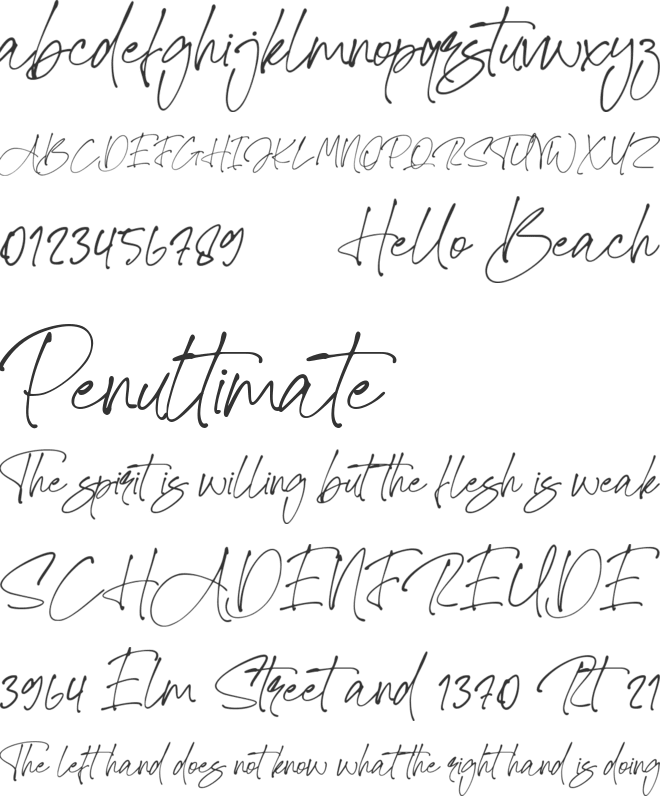 abcdefghijklmnopqrstuvwxyz
ABCDEFGHIJKLMNOPQRSTUVWXYZ
0123456789 Hello Beach
Penultimate
The spirit is willing but the flesh is weak
SCHADENFREUDE
3964 Elm Street and 1370 Rt 21
The left hand does not know what the right hand is doing